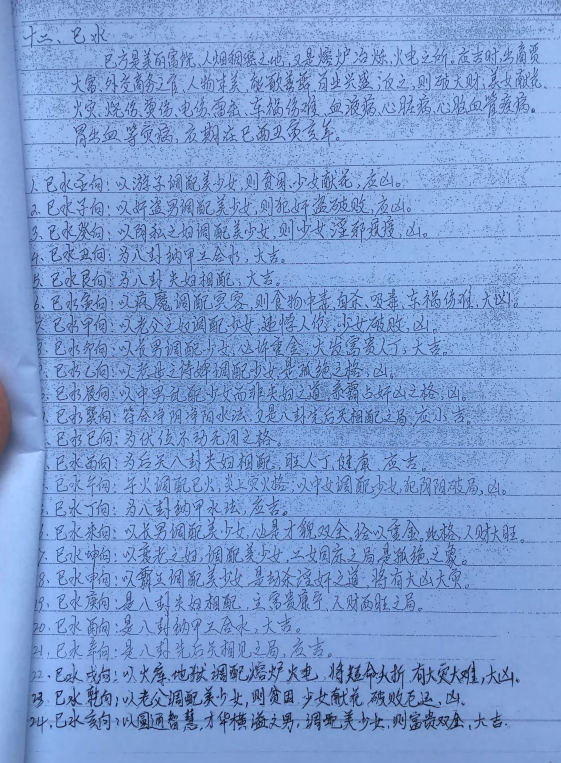 十二、巳水
巳方是美的宫院,人烟稠密之地,又是熔炉冶炼,火电之所,应吉时,出商贾
大富,外交商务之官,人物秀美,能歌善舞,百业兴盛,反之,则破大财,美女献花,
火灾,烧伤,烫伤,电伤,雷击,车祸伤难,血液病,心脏病,心脑血管疾病。
胃出血等灾病,应期在巳酉丑寅亥年。
1.巳水壬向:以游子调配美少女,则贫困,少女献花,应凶。
2.巳水子向:以奸盗男调配美少女,则犯奸盗破败,应凶。
3.巳水癸向:以阴私之妇调配美少女,则少女淫邪,凶。
巳水丑向:为八卦纳甲三合水,大吉。
巳水艮向:为八卦夫妇相配,大吉。
巳水寅向:以疯魔调配则食物中毒,自杀,吸毒,车祸伤难,大凶。
巳水甲向:以老父之妇调配少女,违悖人伦,少女破败,凶。
巳水卯向:以长男调配少女,必许重金,大发富贵人丁,大吉。
巳水乙向:以老母之侍婢调配少女是孤绝之格,凶。
巳水辰向:以中男乱配少女而非夫妇之道,霸占奸凶之格,凶。
巳水巽向:符合净阴净阳水法,又是八卦先后天相配之局,应小吉。
巳水巳向:为伏位不动无用之格。
巳水丙向:为后天八卦夫妇相配,旺人丁,健康,应吉。
巳水午向:午火调配巳火,炎上灾火格,以中女调配少女,犯阴阳破局,凶。
巳水丁向:为八卦纳甲水法,应吉。
巳水未向:以长男调配美少女,他是才貌双全,给以重金,此格,人财大旺。
巳水坤向:以寡老之妇,调配美少女,二女同床之局是孤绝之象。
8.巳水申向:以霸道调配美少女,是劫杀淫奸之道,将有大凶大灾。
19.巳水庚向:是八卦夫妇相配,主富贵康宁,人财两旺之局。
20.巳水酉向:是八卦纳甲三合水,大吉。
21.巳水辛向:是八卦先后天相见之局,应吉。
22.巳水戌向:以火库,地狱调配熔炉火电,将短命夭折,有大灾大难,大凶。
23.巳水乾向:以老父调配美少女,则贫困,少女献花,破败厄运,凶。
24.巳水亥向:以圆通智慧,才华横溢之男,调配美少女,则富贵双全,大吉.